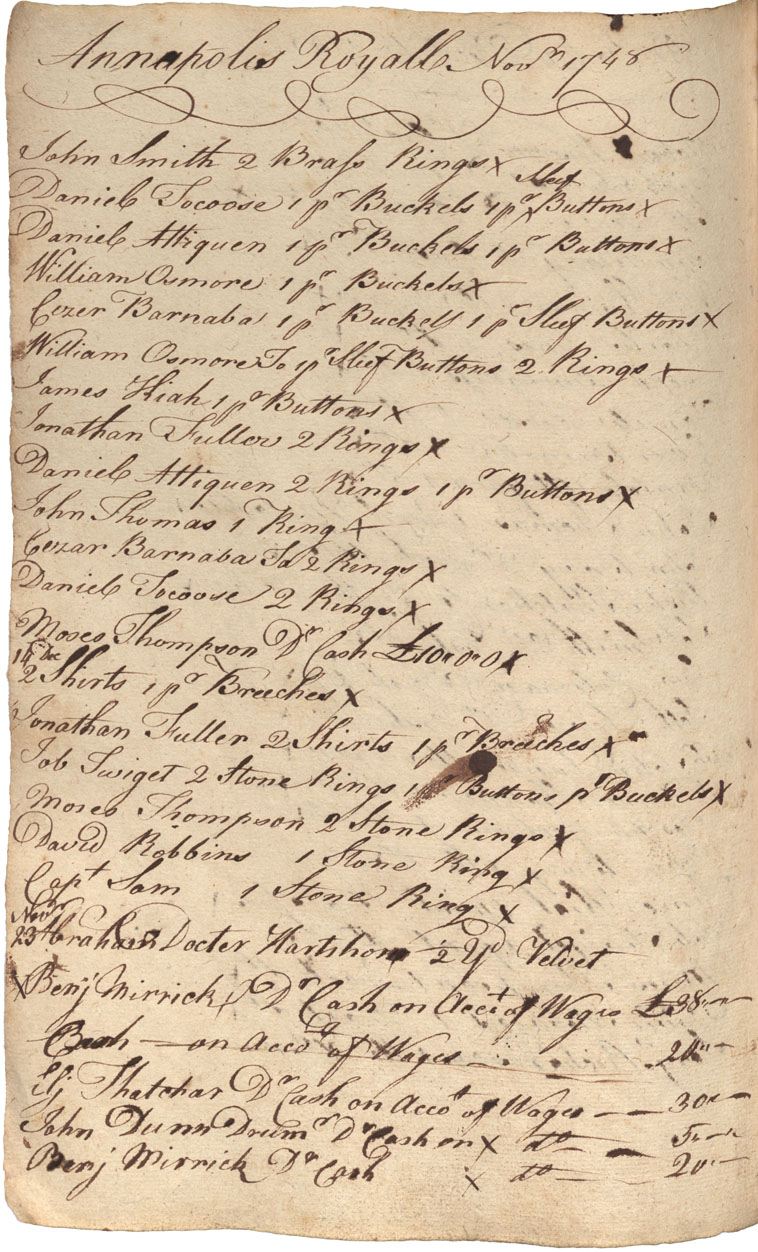 Annapolis Royall Novr 1748
John Smith 2 Brass Rings x
Sleef
Daniel Tocoose 1 pr Buckels 1 pr Buttons x
Daniel Attiquen 1 pr Buckels 1 pr Buttons x
William Osmore 1 pr Buckels x
Cezer Barnaba 1 pr Buckels 1 pr Sleef Buttons x
William Osmore To 1 pr Sleef Buttons 2 Rings x
James Hiah 1 pr Buttons x
Jonathan Fuller 2 Rings x
Daniel Attiquen 2 Rings 1 pr Buttons x
John Thomas 1 Ring x
Cezar Barnaba To 2 Rings x
Daniel Tocoose 2 Rings x
Moses Thompson Dr Cash £10"0"0 x
14 Dec
2 Shirts 1 pr Breeches x
Jonathan Fuller 2 Shirts 1 pr Breeches x
Job Swiget 2 Stone Rings 1 pr Buttons pr Buckels x
Moses Thompson 2 Stone Rings x
David Robbins 1 Stone Ring x
Capt Sam 1 Stone Ring x
Novr
23 Abraham Docter Hartshorn 1/2 Yd Velvet
x Benj Mirrick Dr Cash on Acct of Wages £38"-"-
Cash - on Accot of Wages 20"-
Thatchar Dr Cash on Accot of Wages 30"-
John Dunn Drumr Dr Cash on x do 5"-"-
Benj Mirrick Dr Cash x do 20"-